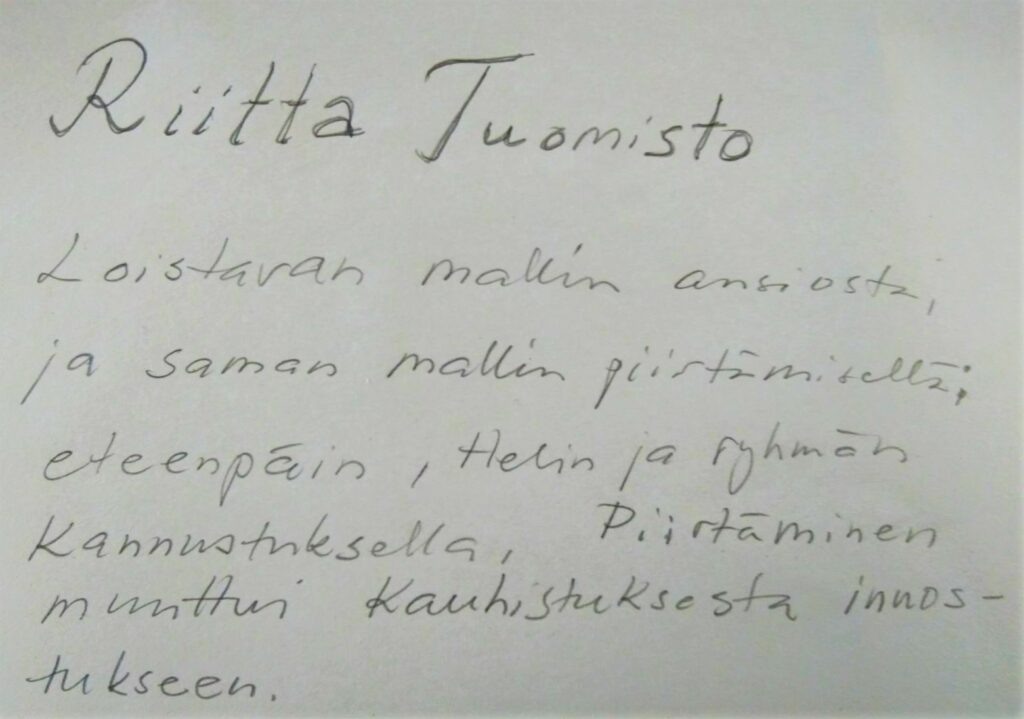 Riitta Tuomisto
Loistavan mallin ansiosta,
ja saman mallin piirtämisellä;
eteenpäin, Helin ja ryhmän
Kannustuksella, Piirtäminen
muuttui Kauhistuksesta innos-
tukseen.